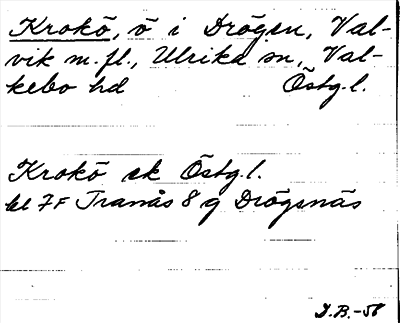 Krokö, ö i Drögen, Val-
vik m.fl., Ulrika sn, Val-
kebo hd Östg.l.
Krokö ek Östg.l.
bl 7F Tranås 8 g Drögsnäs
I.B.-58